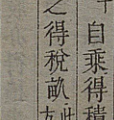 自乘得積
之得稅畝此